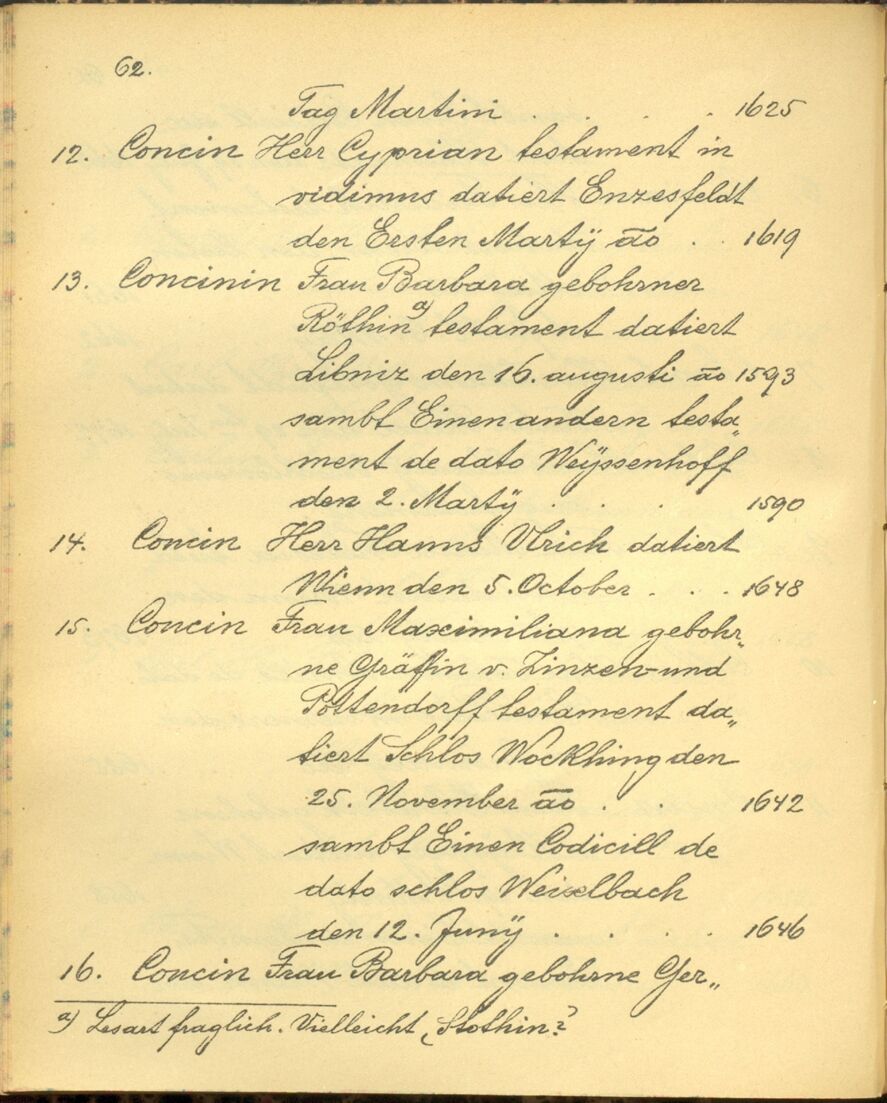 62.
Tag Martini . . . . 1625
12. Concin Herr Cyprian testament in
vidimus datiert Enzesfeldt
den Ersten Martÿ ao̅ . . 1619
13. Concinin Frau Barbara gebohrner
Röthin a) testament datiert
Libniz den 16. augusti ao̅ 1593
sambt Einen andern testa„
ment de dato Weÿssenhoff
den 2. Martÿ . . . 1590
14. Concin Herr Hanns Vlrich datiert
Wienn den 5. October . . . 1648
15. Concin Frau Maximiliana gebohr„
ne Gräffin v. Zinzen-und
Pottendorff testament da„
tiert Schlos Wockhing den
25. November ao̅ . . 1642
sambt Einen Codicill de
dato schlos Weixelbach
den 12. Junÿ . . . . 1646
16. Concin Frau Barbara gebohrne Ger„
a) Lesart fraglich. Vielleicht „Stothin"?